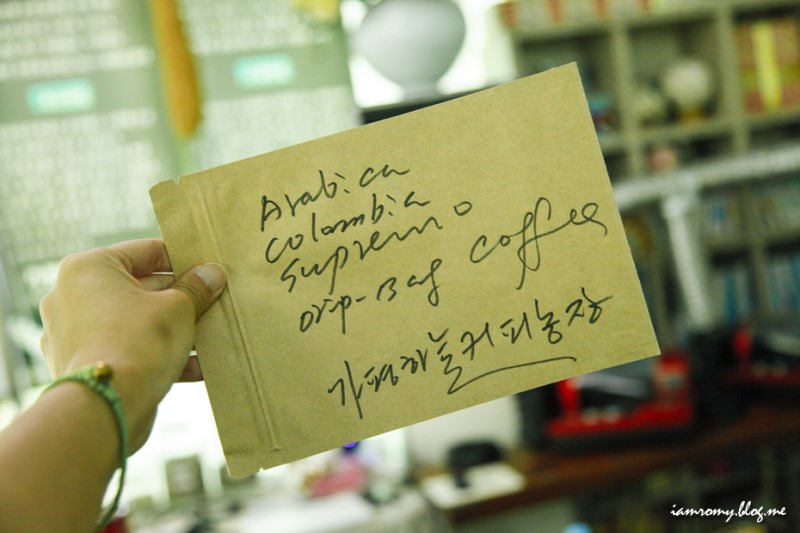 Arabica
Colombia
Supremo
Drip-Bag coffee
가평하늘커피농장
iamromy.blog.me